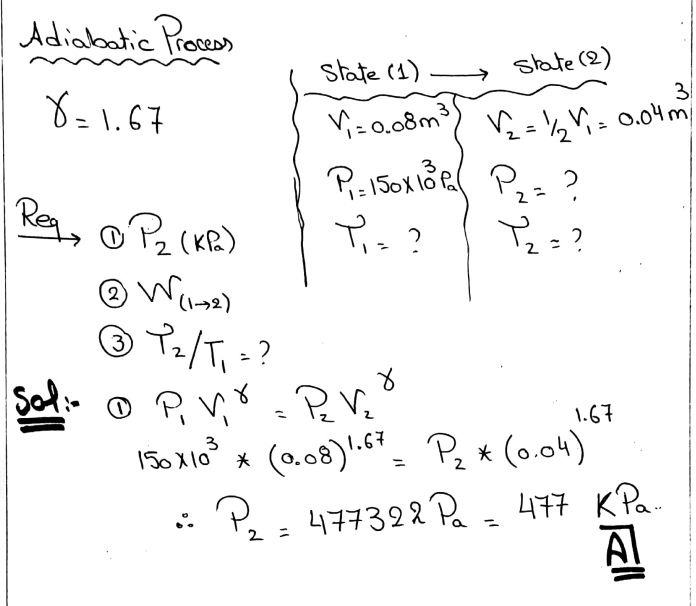 Adiabatic Process
State (1) → State (2)
γ = 1.67
V₁ = 0.08 m³
V₂ = 1/2 V₁ = 0.04 m³
P₁ = 150 x 10³ Pa
P₂ = ?
T₁ = ?
T₂ = ?
Req → ① P₂ (KPa)
② W(1→2)
③ T₂/T₁ = ?
Sol:- ① P₁ V₁^γ = P₂ V₂^γ
150 x 10³ * (0.08)^1.67 = P₂ * (0.04)^1.67
∴ P₂ = 477322 Pa = 477 KPa..
A